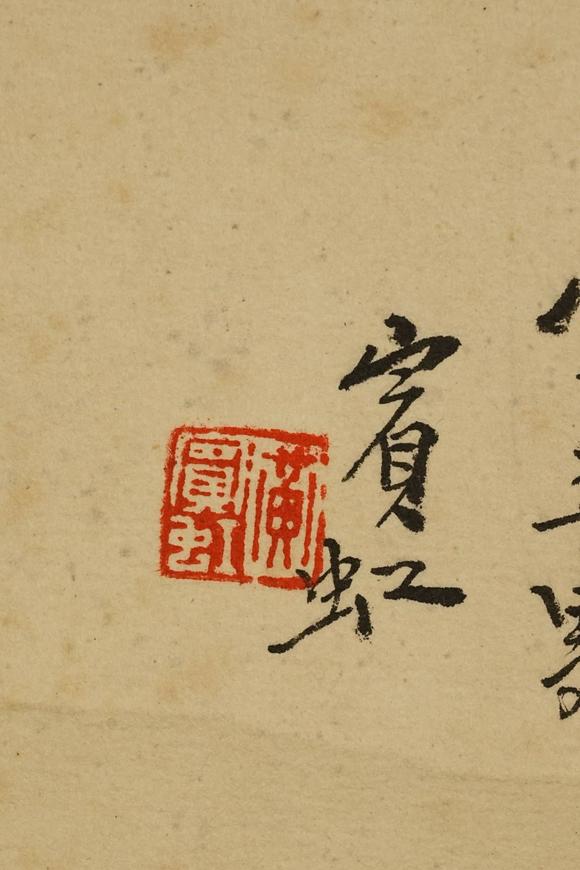 賓虹
黃賓虹